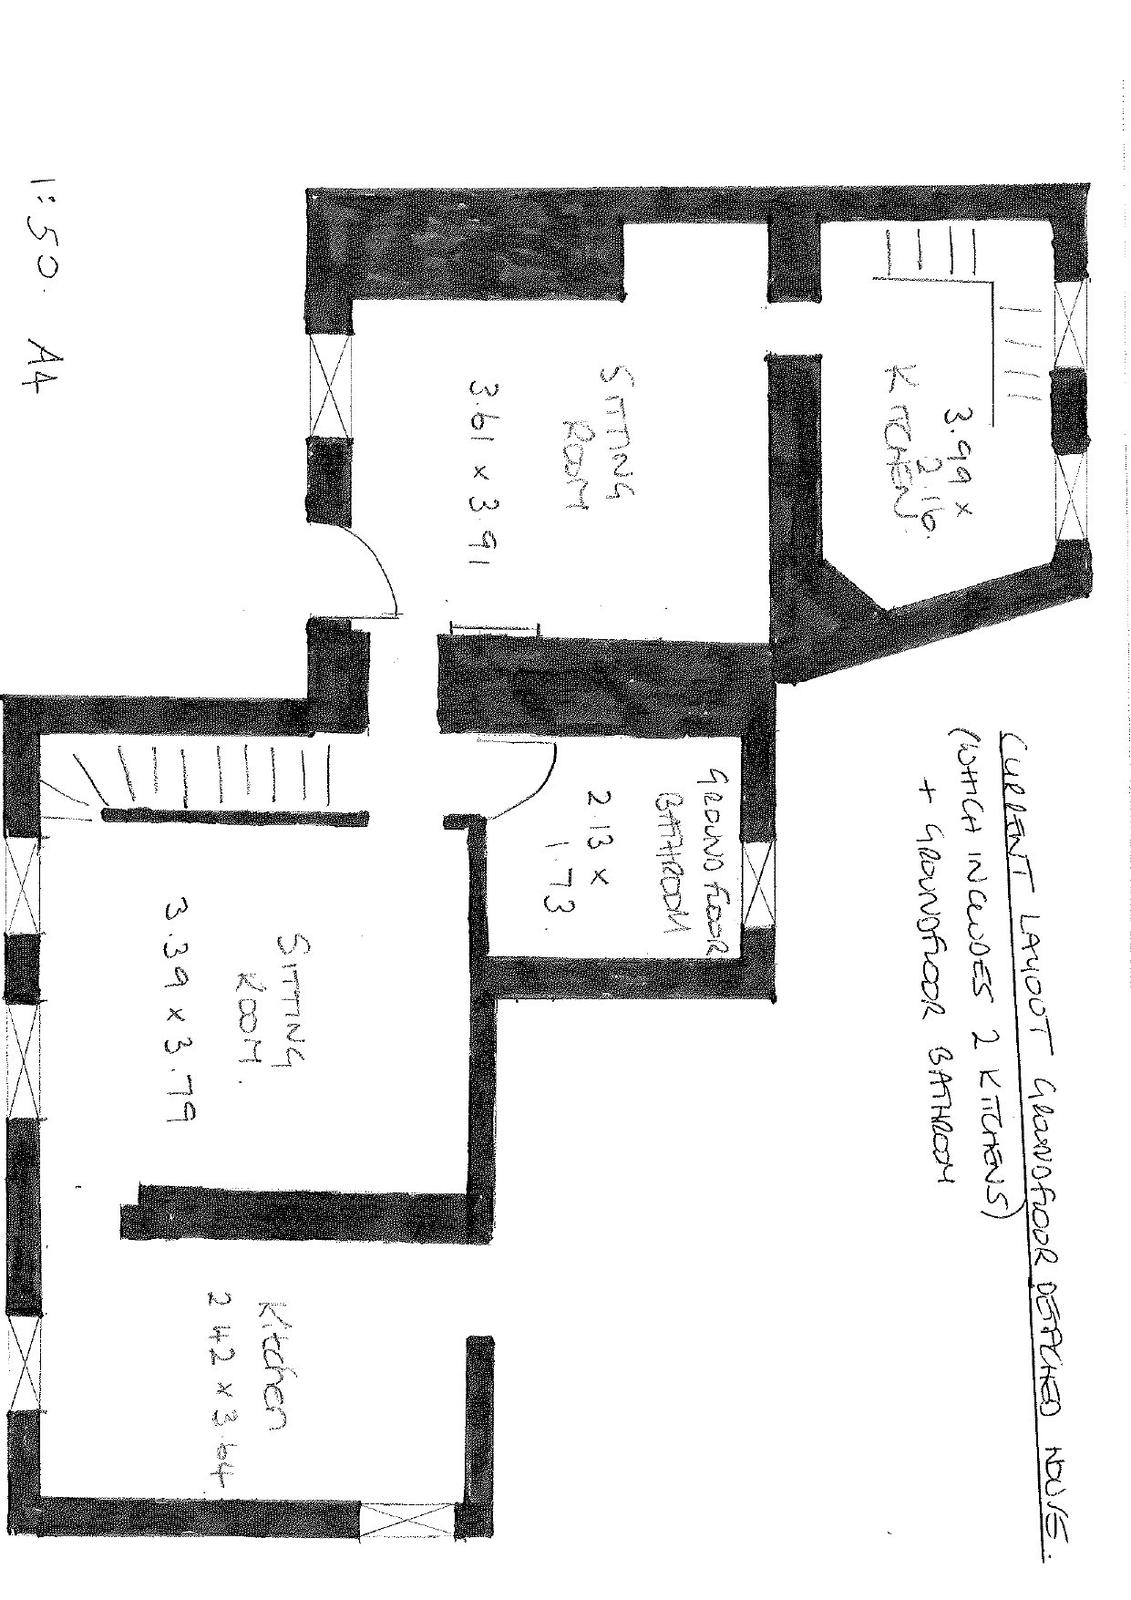 CURRENT LAYOUT GROUNDFLOOR DETACHED HOUSE.
(WHICH INCLUDES 2 KITCHENS)
+ GROUNDFLOOR BATHROOM
3.99 x
2.16.
KITCHEN.
SITTING
ROOM
3.61 x 3.91
GROUND FLOOR
BATHROOM
2.13 x
1.73.
SITTING
ROOM.
3.39 x 3.79
Kitchen
2 42 x 3.64
1:50. A4